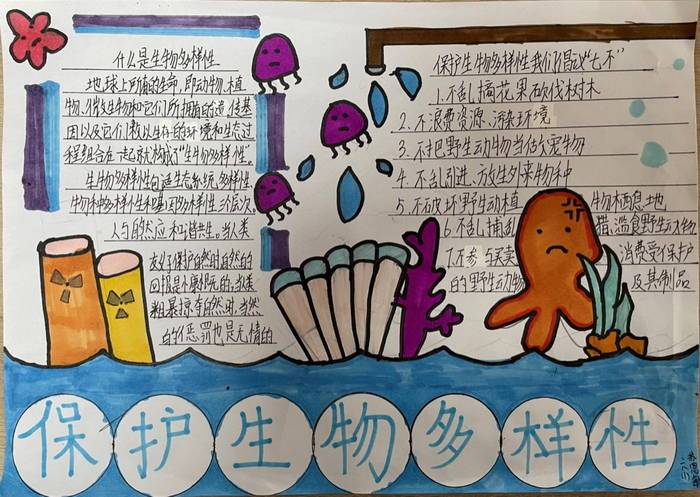 什么是生物多样性
地球上所有的生命，即动物、植
物、微生物和它们所拥有的遗传基
因以及它们赖以生存的环境和生态过
程组合在一起就构成了“生物多样性”。
生物多样性包适生态系统多样性、
物种多样性和基因多样性三个层次。
人与自然应和谐共生。当人类
友好保护自然时自然的
回报是慷慨的；当人类
粗暴掠夺自然时，自然
的惩罚也是无情的
保护生物多样性我们倡议“七不”
1.不乱摘花果砍伐树木
2.不浪费资源、污染环境
3.不把野生动物当估宠物
4.不乱引进、放生外来物种
5.不破坏野生动植物栖息地
6.不乱捕乱猎、滥食野生动物
7.不参与买卖消费受保护
的野生动物及其制品
保护生物多样性